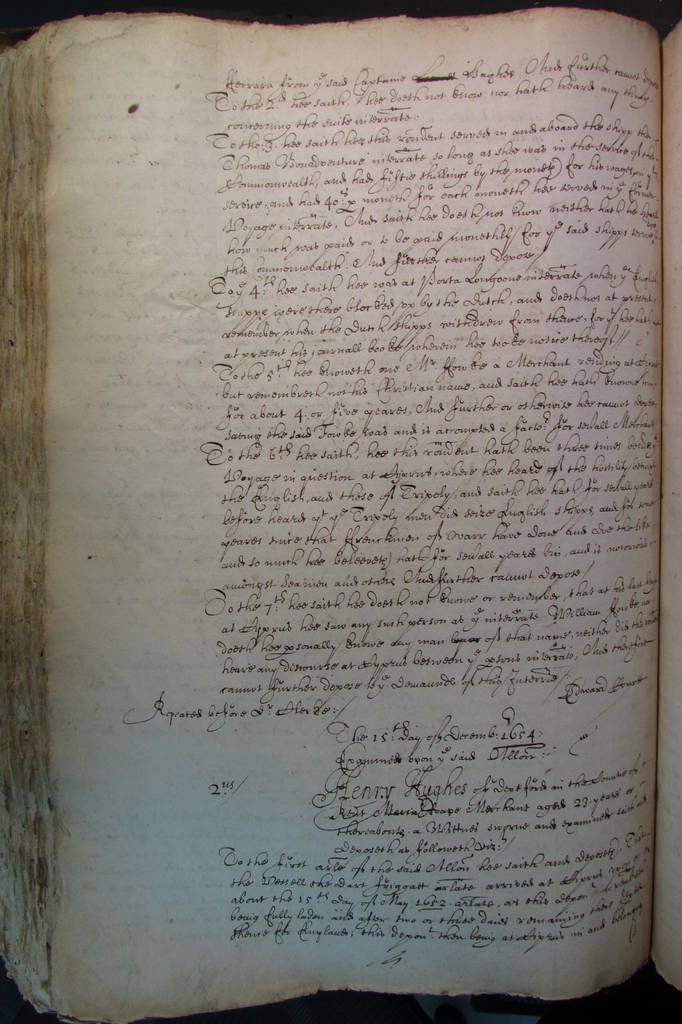 Ferrara from ye said Captaine Hughes, And further cannot depose
To the 2d. hee saith, hee doeth not know nor hath heard any thing
concerning the suite interrate:
To the .3. hee saith hee this rendent served in and aboard the shipp the
Thomas Bonadventure interrate so long as shee was in the service of the
Commonwealth, and had fiftie shillings by the moneth for his wages in ye
service, and had 40s. p moneth for each moneth hee served in ye former
Voyage interrate, And saith hee doeth not know neither hath hee heard
how much was paid or to be paid monethly for ye said shipps service
this Commonwealth. And further cannot depose/
To ye 4.th hee saith hee was at Porta Longoone interrate when ye English
shipps were there blocked up by the Dutch, and doeth not at present
remember when the Dutch shipps withdrew from thence, for yt hee hath not
at present his journall booke wherein hee tooke notice thereof//
To the 5th hee knoweth one Mr Fowke a Merchant residing at
but remembreth not his Christian name, and saith hee hath knowne him
for about 4. or five yeares, And further or otherwise hee cannot depose
saving the said Fowke was and is accompted a factor for severall Merchants
To the 6th hee saith, hee this rendent hath been three times besides ye
Voyage in question at Cyprus, where hee heard of the hostility between
the English, and those of Tripoly, and saith hee hath for severall yeares
before heard yt ye Tripoly men did seize English shipps, and for some
yeares since that Frenchmen of Warr have done and doe the like
and so much hee beleeveth hath for severall yeares bin, and is notorious
amongst seamen and others. And further cannot depose/
To the 7.th hee saith hee doeth not knowe or remember, that at his last being
at Cyprus hee saw any such person as ye interrate William Fowke, nor
doeth hee personally knowe any man of that name, neither did this rendent
heare any discourse at Cyprus between ye persons interrate, And therefore
cannot further depose to ye demaunds of this Interrie/
Edward
Repeated before Dr. Clerke:/
The 15th day of Decemb: 1654:
Examined upon ye said Allon:
2us/
Henry Hughes of Deptford in the Countie of
Kent Merchant aged 23. yeares or
thereabouts a Wittnes sworne and examined saith and
deposeth as followeth viz:
To the first arle of the said Allon hee saith and deposeth, That
the Vessell the Dart friggatt arlate arrived at Cyprus
about the 15th day of May 1652. arlate, as this depont
being fully laden and after two or three daies remaining there
thence for England; this depont then being at Cyprus in and belonging